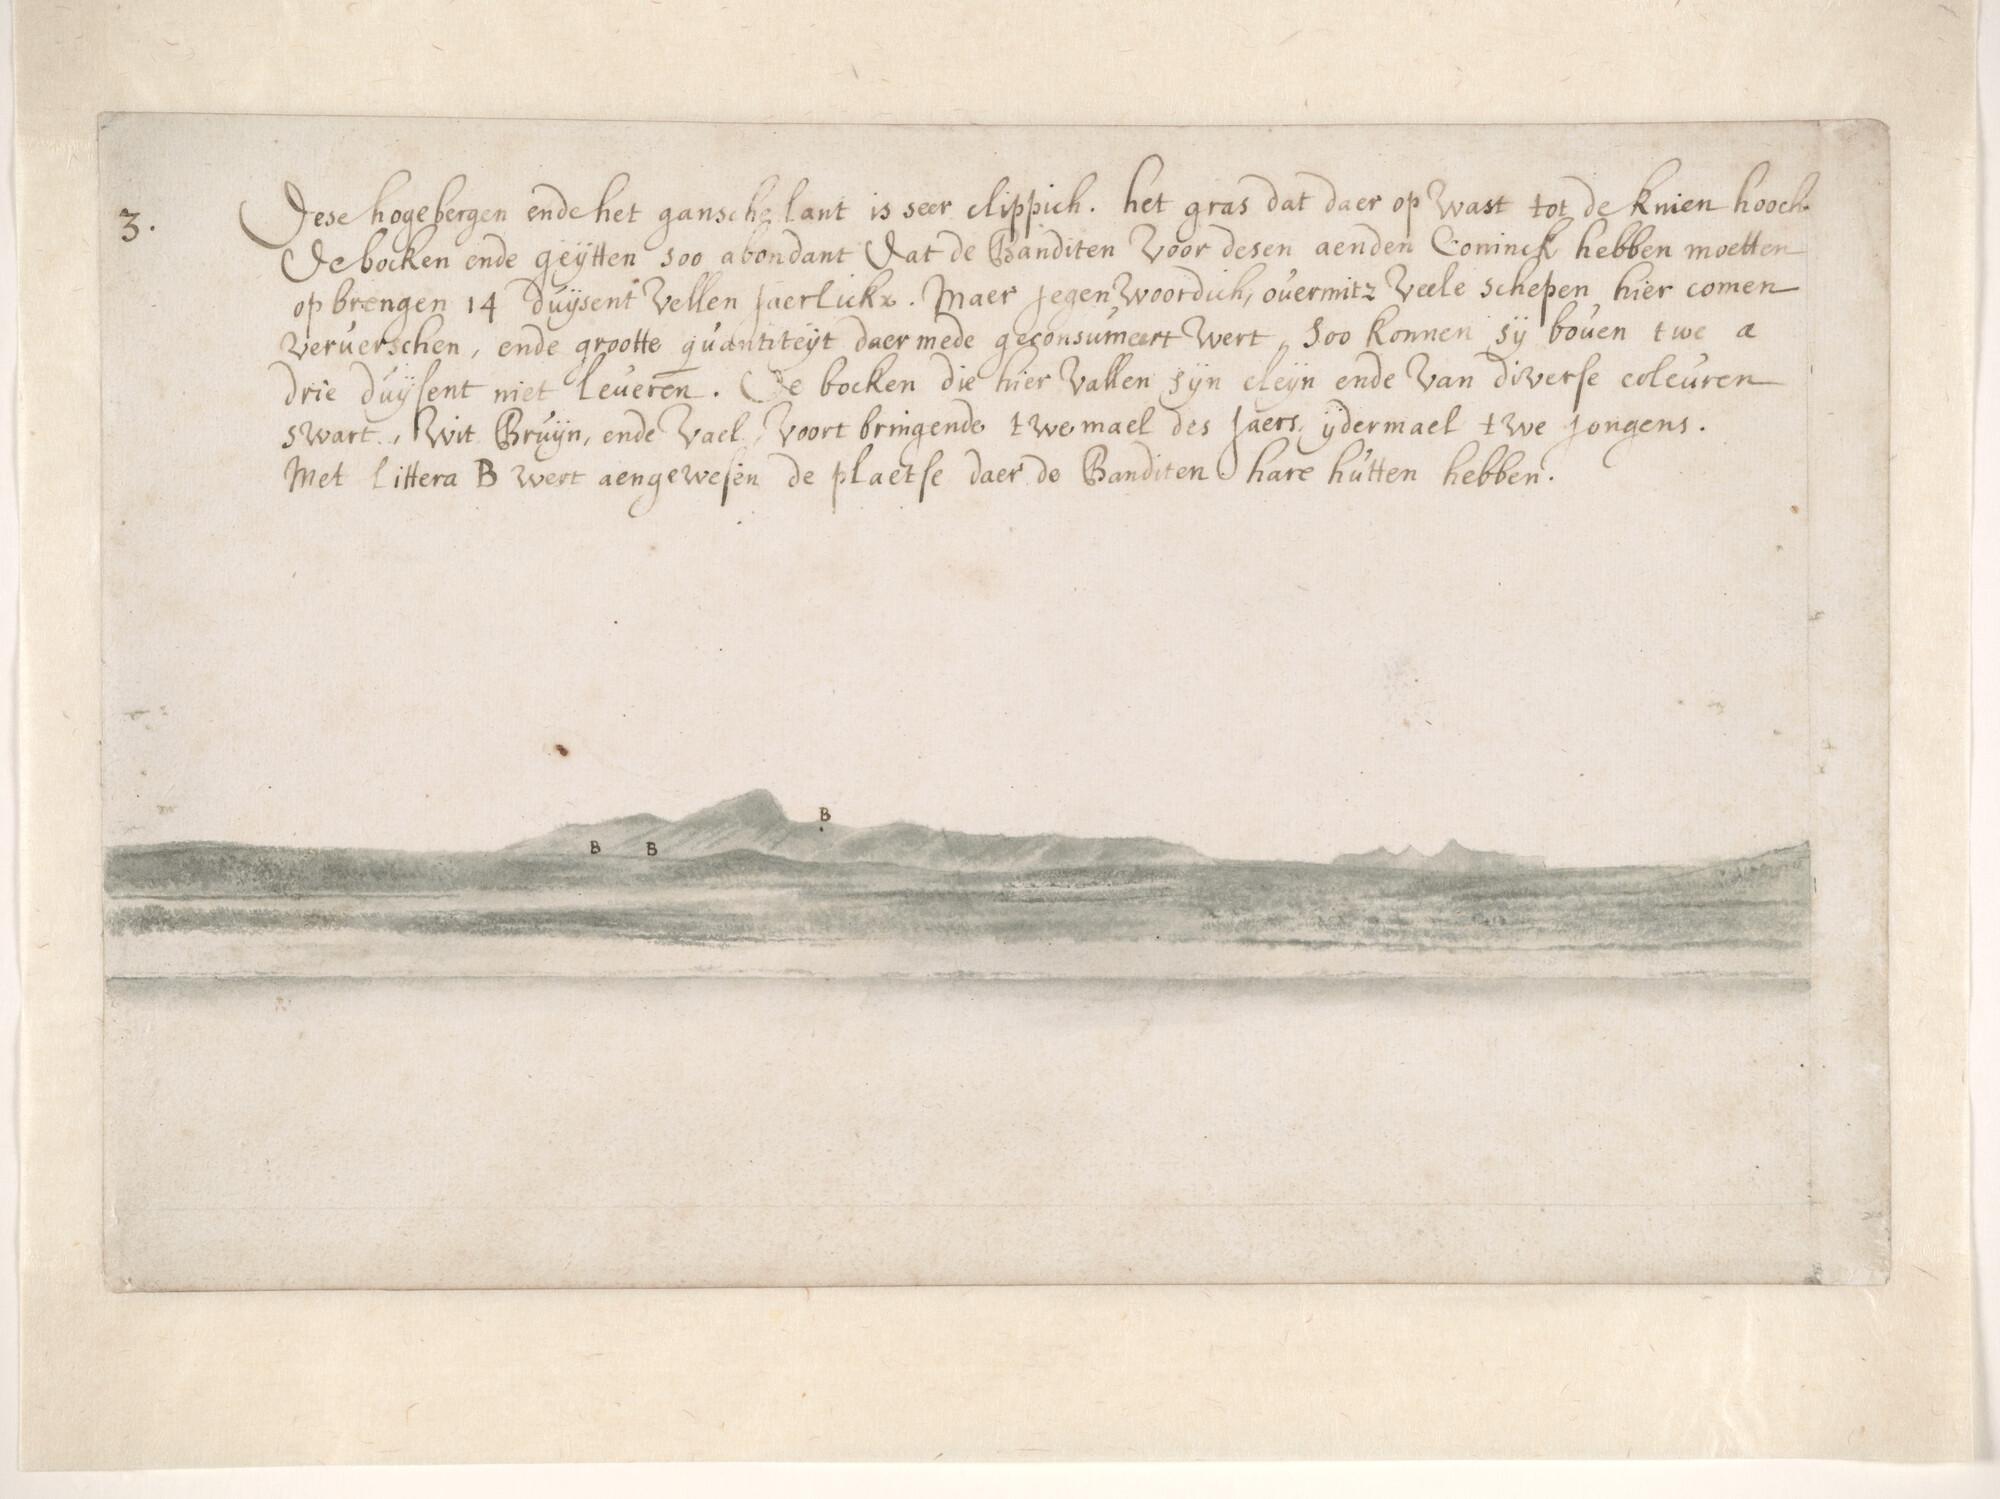 3.
Dese hoge bergen ende het gansche lant is seer clippich. het gras dat daer op wast tot de knien hooch.
De bocken ende geytten soo abondant dat de Banditen voor desen aen den Coninck hebben moetten
op brengen 14 duysent vellen jaerlickx. Maer jegenwoordich, ouermitz veele schepen hier comen
veruerschen, ende grootte quantiteyt daer mede geconsumeert wert, soo konnen sy bouen twe a
drie duysent niet leueren. De bocken die hier vallen syn cleyn ende van diverse coleuren
swart, wit Bruyn, ende vael, voort bringende twemael des jaers, ydermael twe jongens.
Met littera B wert aengewesen de plaetse daer de Banditen hare hutten hebben.
B
B B